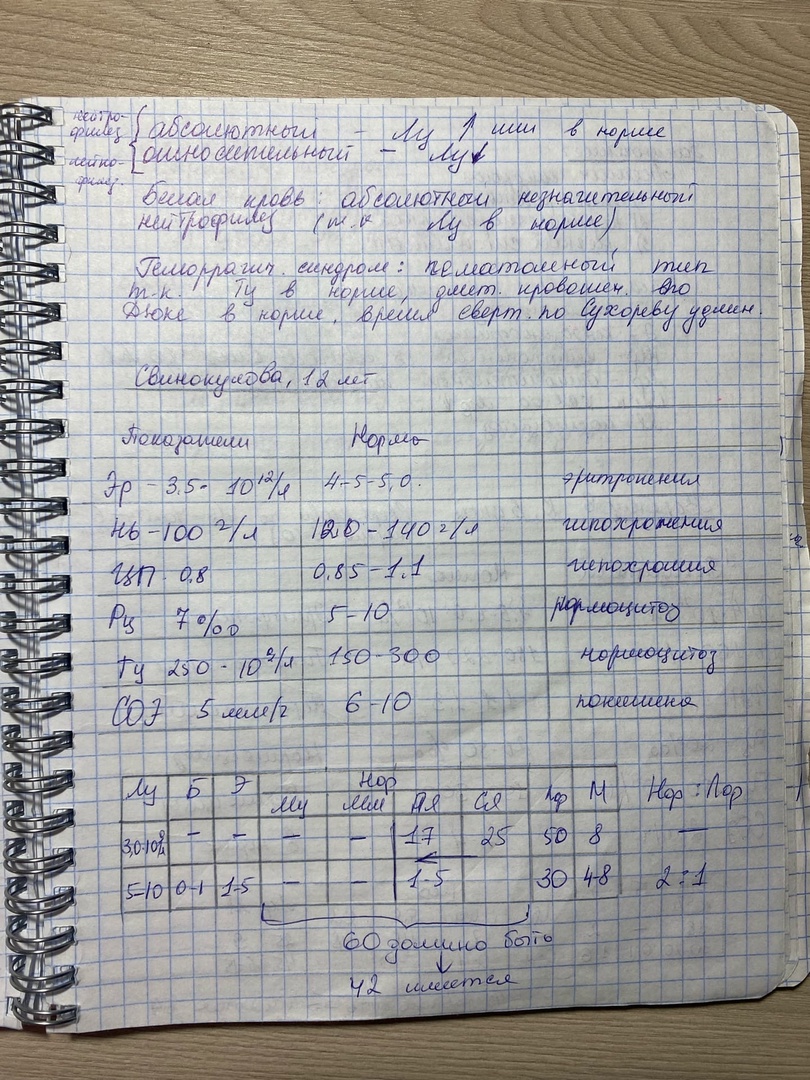 нейтро-
филез { абсолютный - Лц ↑ или в норме
нейтро-
филез. { относительный - Лц↓
Белая кровь: абсолютный незначительный
нейтрофилез (т.к Лц в норме)
Геморрагич. синдром: гематомный тип
т.к. Тц в норме, длит. кровотеч. по
Дюке в норме, время сверт. по Сухореву удлин.
Свинокулова, 12 лет
Показатели Норма
Эр - 3,5 · 10¹²/л 4-5-5,0. эритропения
Hb - 100 г/л 120 - 140 г/л гипохромения
ЦП 0,8 0,85 - 1,1 гипохромия
Рц 7‰ 5 - 10 нормоцитоз
Тц 250 · 10⁹/л 150 - 300 нормоцитоз
СОЭ 5 мм/г 6 - 10 понижена
Лц Б Э Нф Лф М Нф : Лф
Мц Мм ПЯ СЯ
3,0·10⁹/л - - - - 17 25 50 8 —
5-10 0-1 1-5 - - 1-5 30 4-8 2:1
60 должно быть
↓
42 имеется